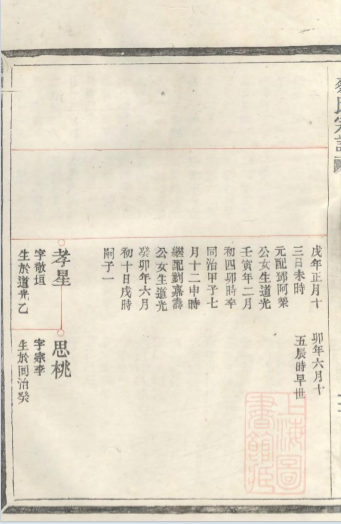 氏宗譜
戊年正月十
三日未時
元配鄧阿
公女生道光
壬寅年二月
初四卯時卒
同治甲子七
月十二申時
繼配劉嘉壽
公女生道光
癸卯年六月
初十日戌時
嗣子一
卯年六月十
五辰時早世
孝星
字敬垣
生於道光乙
思桃
字宗季
生於同治癸
上海圖
書館藏